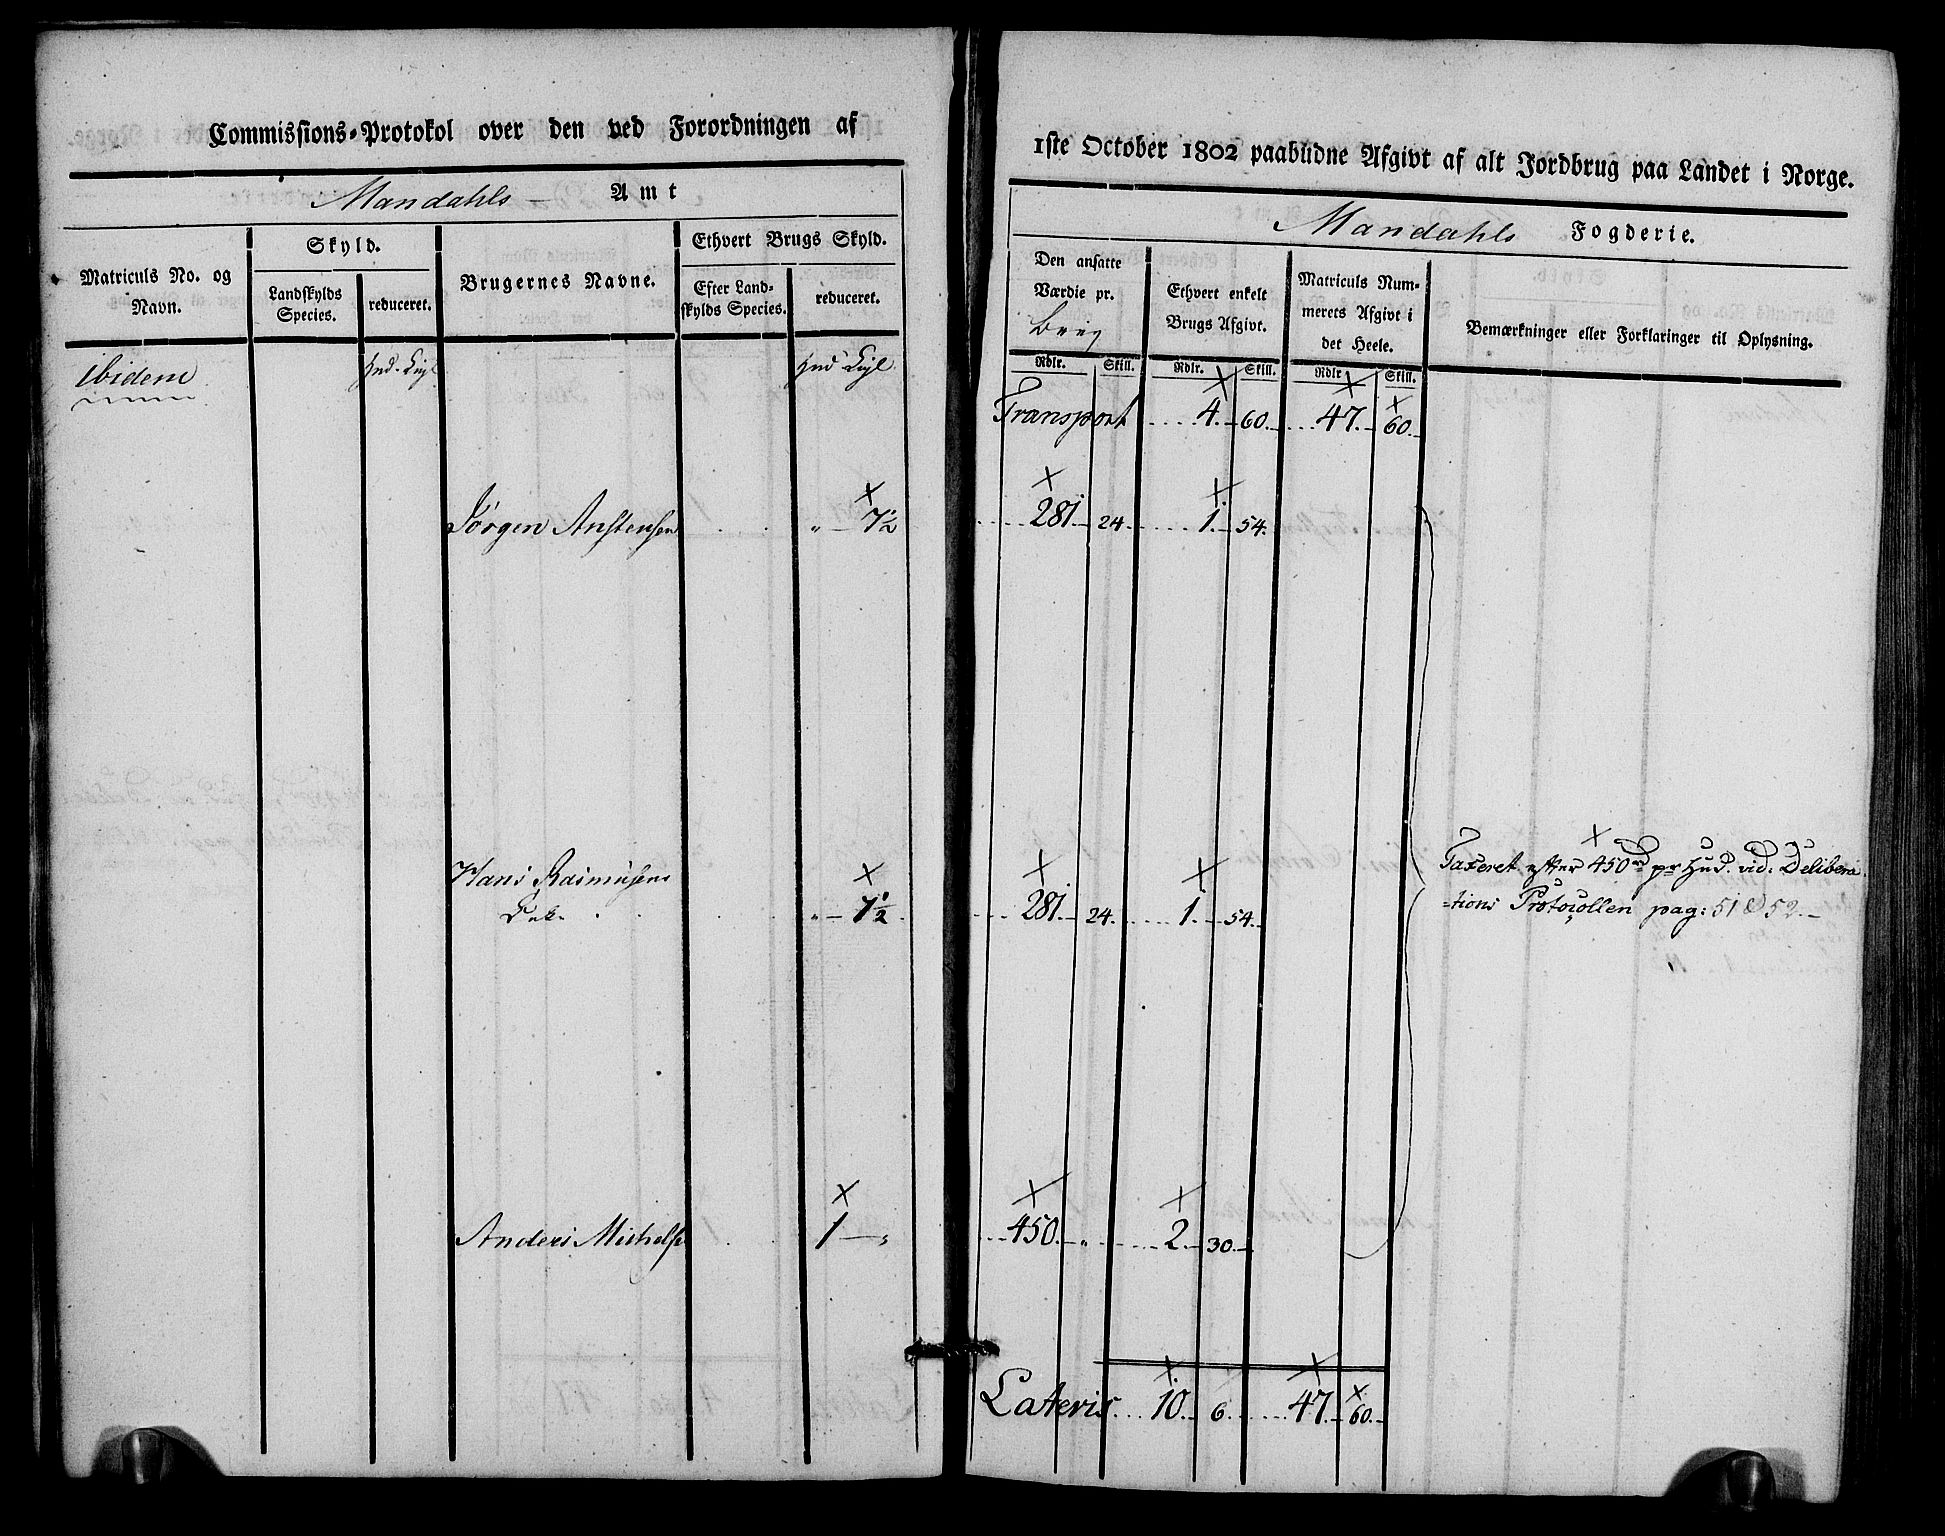 Commissions-Protokol over den ved Forordningen af
Mandahls Amt
Matriculs No. og
Navn.
Skyld.
Landskylds
Species.
reduceret.
Brugernes Navne.
Ethvert Brugs Skyld.
Efter Land-
skylds Species.
reduceret.
ibidem
Jørgen Anstensen " 7½
Hans Rasmusens
Enk. " 7½
Anders Michels 1 "
1ste October 1802 paabudne Afgivt af alt Jordbrug paa Landet i Norge.
Mandahls Fogderie.
Den ansatte
Værdie pr.
brug
Ethvert enkelt
Brugs Afgivt.
Matriculs Num-
merets Afgivt i
det Heele.
Bemærkninger eller Forklaringer til Oplysning.
Rdlr. Skill. Rdlr. Skill. Rdlr. Skill.
Transport 4. 60. 47. 60.
281. 24. 1. 54.
Taxeret efter 450 rd pr Hud. vid: Delibera
281. 24. 1. 54.
=tions Protocollen pag: 51 & 52.
450. " 2. 30.
Lateris 10. 6. 47. 60.